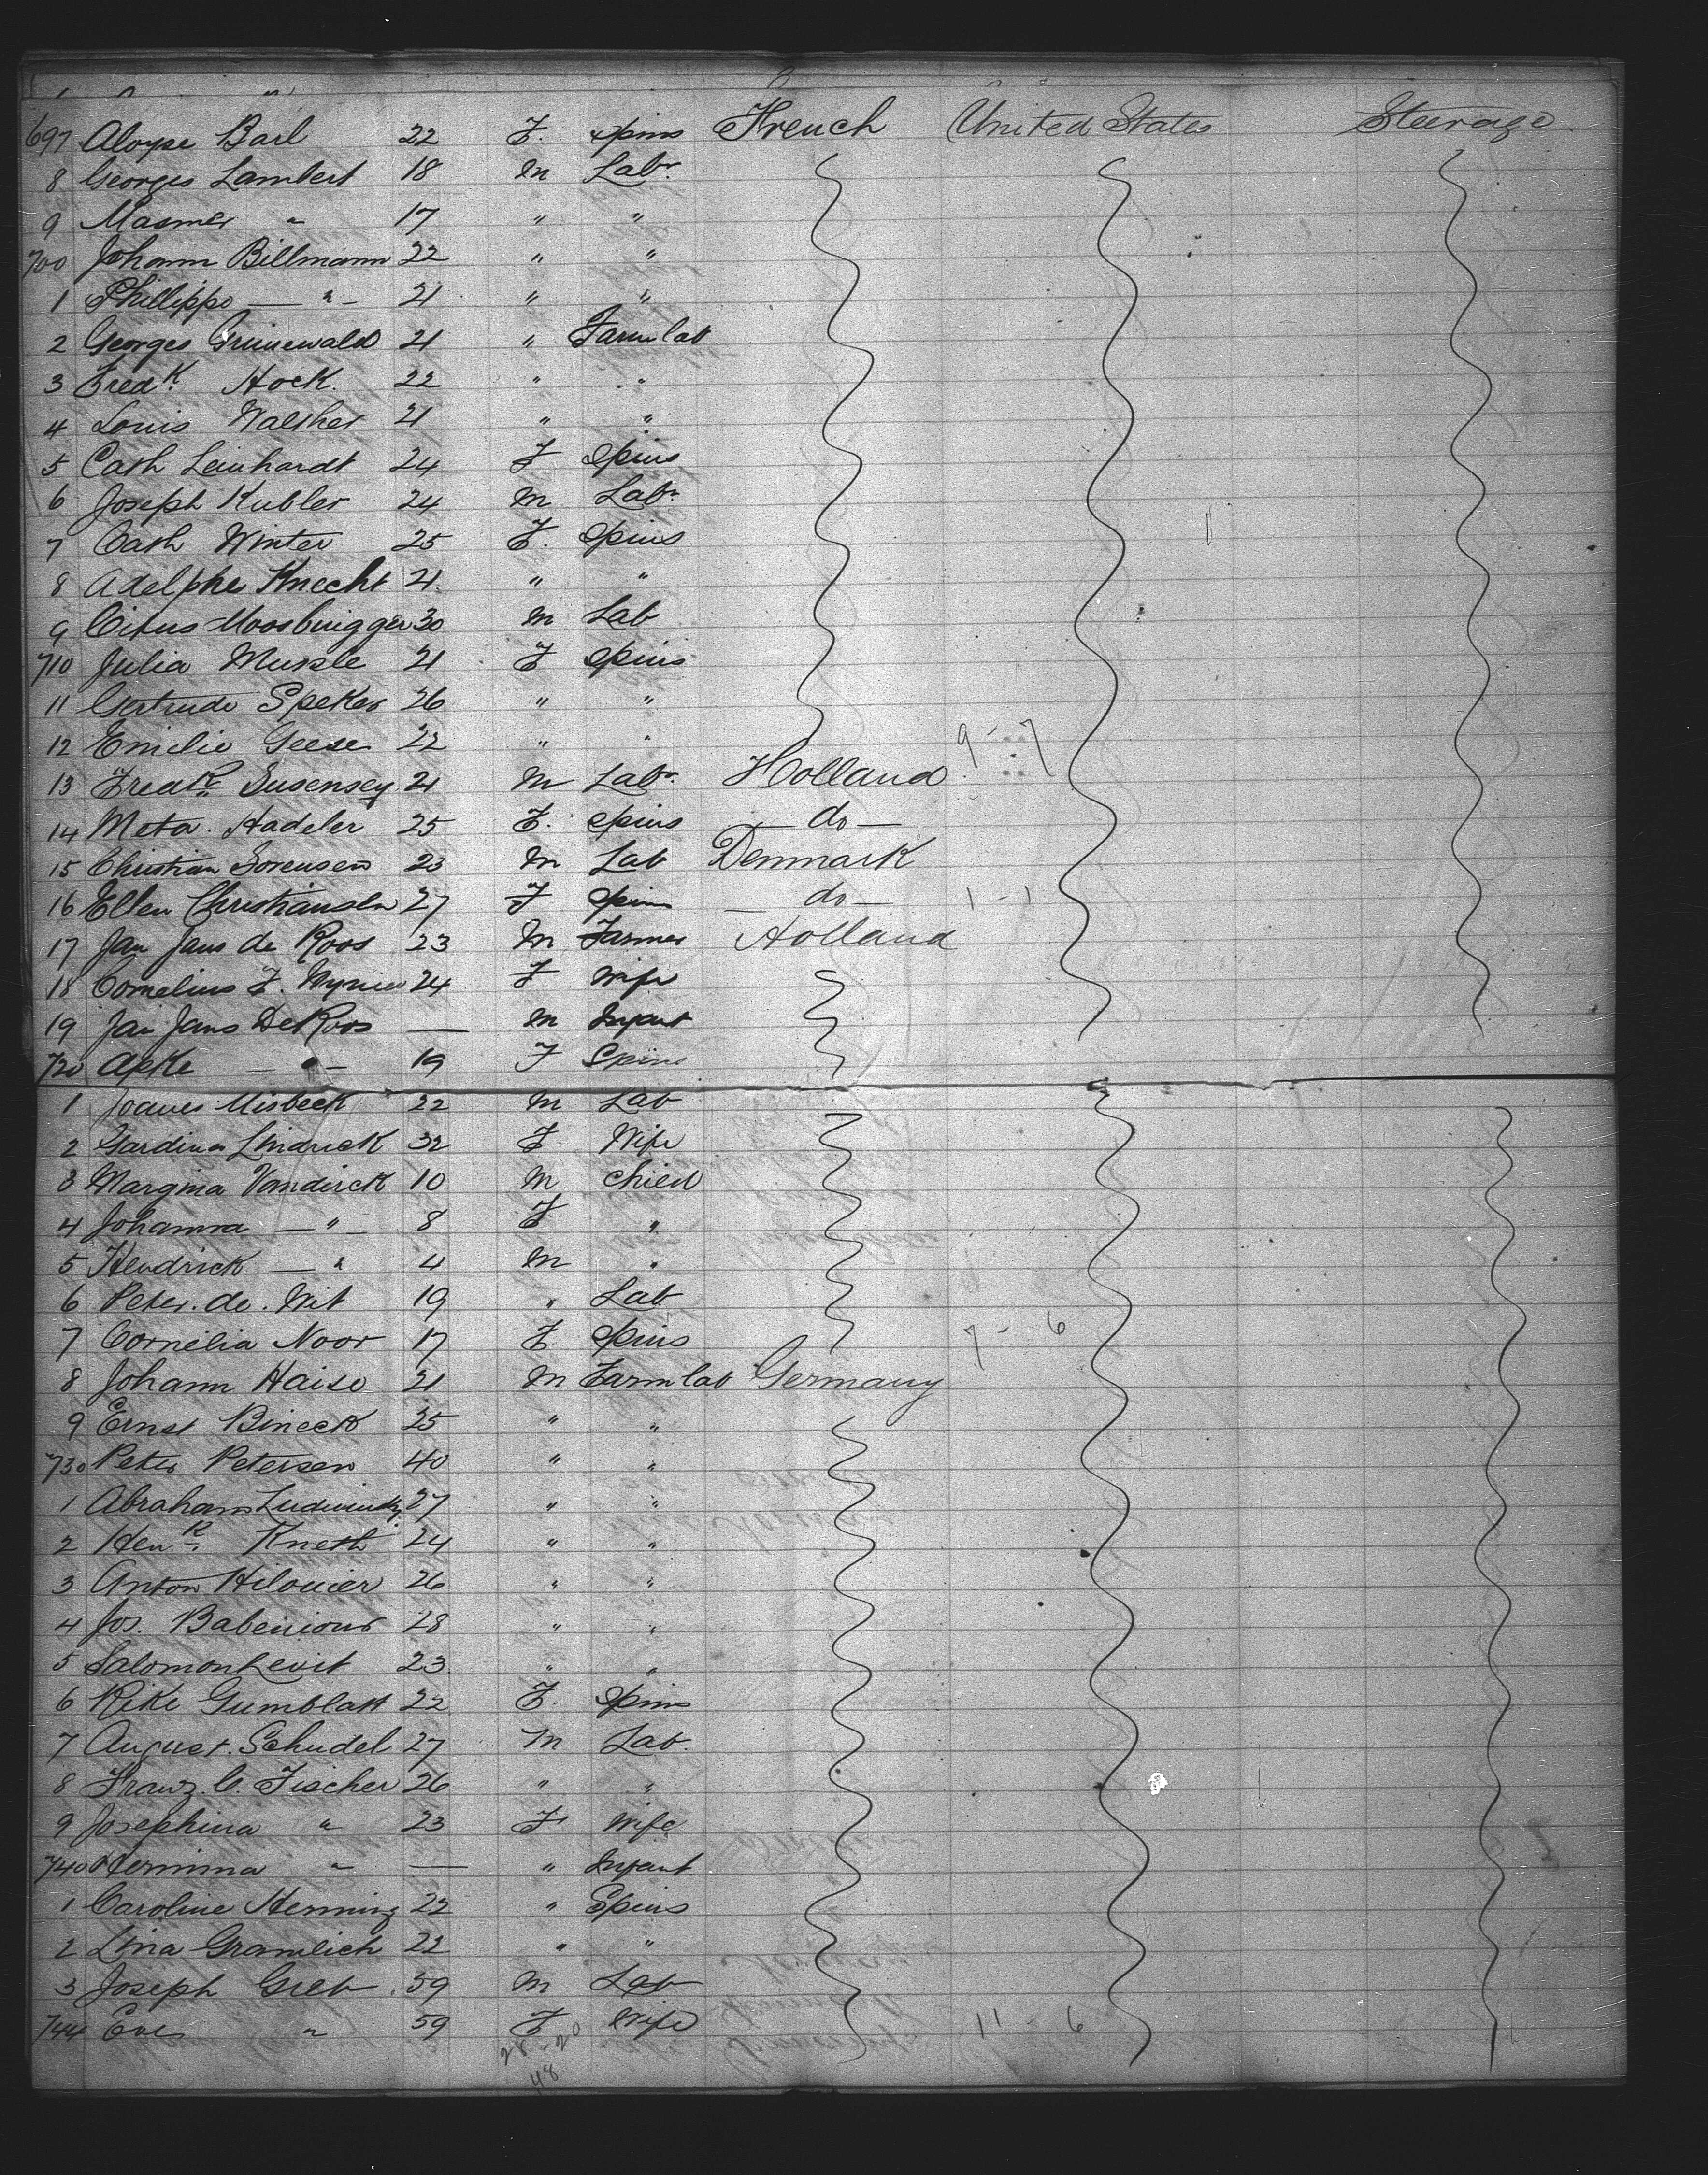 697 Aloyse Barl 22 F. Spins French United States Steerage
8 Georges Lambert 18 m Labr.
9 Masmer " 17 " "
700 Johann Billmann 22 " "
1 Phillippo — " — 21 " "
2 Georges Grunewald 21 " Farm lab
3 Fredk. Hock. 22 " "
4 Louis Walther 21 " "
5 Cath Leinhardt 24 F Spins
6 Joseph Kubler 24 m Labr.
7 Cath Winter 25 F. Spins
8 Adelphe Knecht 21. " "
9 Citus Moosbrugger 30 m Lab
710 Julia Munsle 21 F Spins
11 Gertrude Speker 26 " "
12 Emilie Geese 22 " " 9 - 7
13 Fredk. Susensey 21 m Labr. Holland
14 Meta. Hadeler 25 F. Spins — do —
15 Christian Sorensen 23 m Lab Denmark
16 Ellen Christiansen 27 F Spins — do — 1 - 1
17 Jan Jans de Roos 23 m Farmer Holland
18 Cornelius F. 24 F Wife
19 Jan Jans De Roos — m Infant
720 Apke — " — 19 F Spins
1 Joanes Misbeck 22 m Lab
2 Gardina Lindrick 32 F. Wife
3 Margina Vandirck 10 m Chied
4 Johanna — " — 8 F "
5 Hendrick — " 4 m "
6 Peter. de. Wit 19 " Lab
7 Cornelia Noor 17 F Spins 7 - 6
8 Johann Haise 21 m Farm lab Germany
9 Ernst Bineck 25 " "
730 Peter Petersen 40 " "
1 Abraham 27 " "
2 Henr. Kneth 24 " "
3 Anton Hilouier 26 " "
4 Jos. Babenious 28 " "
5 Salomon Levit 23 " "
6 Rike Gumblatt 22 F. Spins
7 August. Schudel 27 m Lab.
8 Franz. C. Fischer 26 " "
9 Josephina " 23 F Wife
740 Hermina " — " Infant
1 Caroline Henning 22 " Spins
2 Lina Gramlich 22 " "
3 Joseph Greb. 59 m Lab
744 Eva " 59 F Wife 11 - 6
28 - 20
48